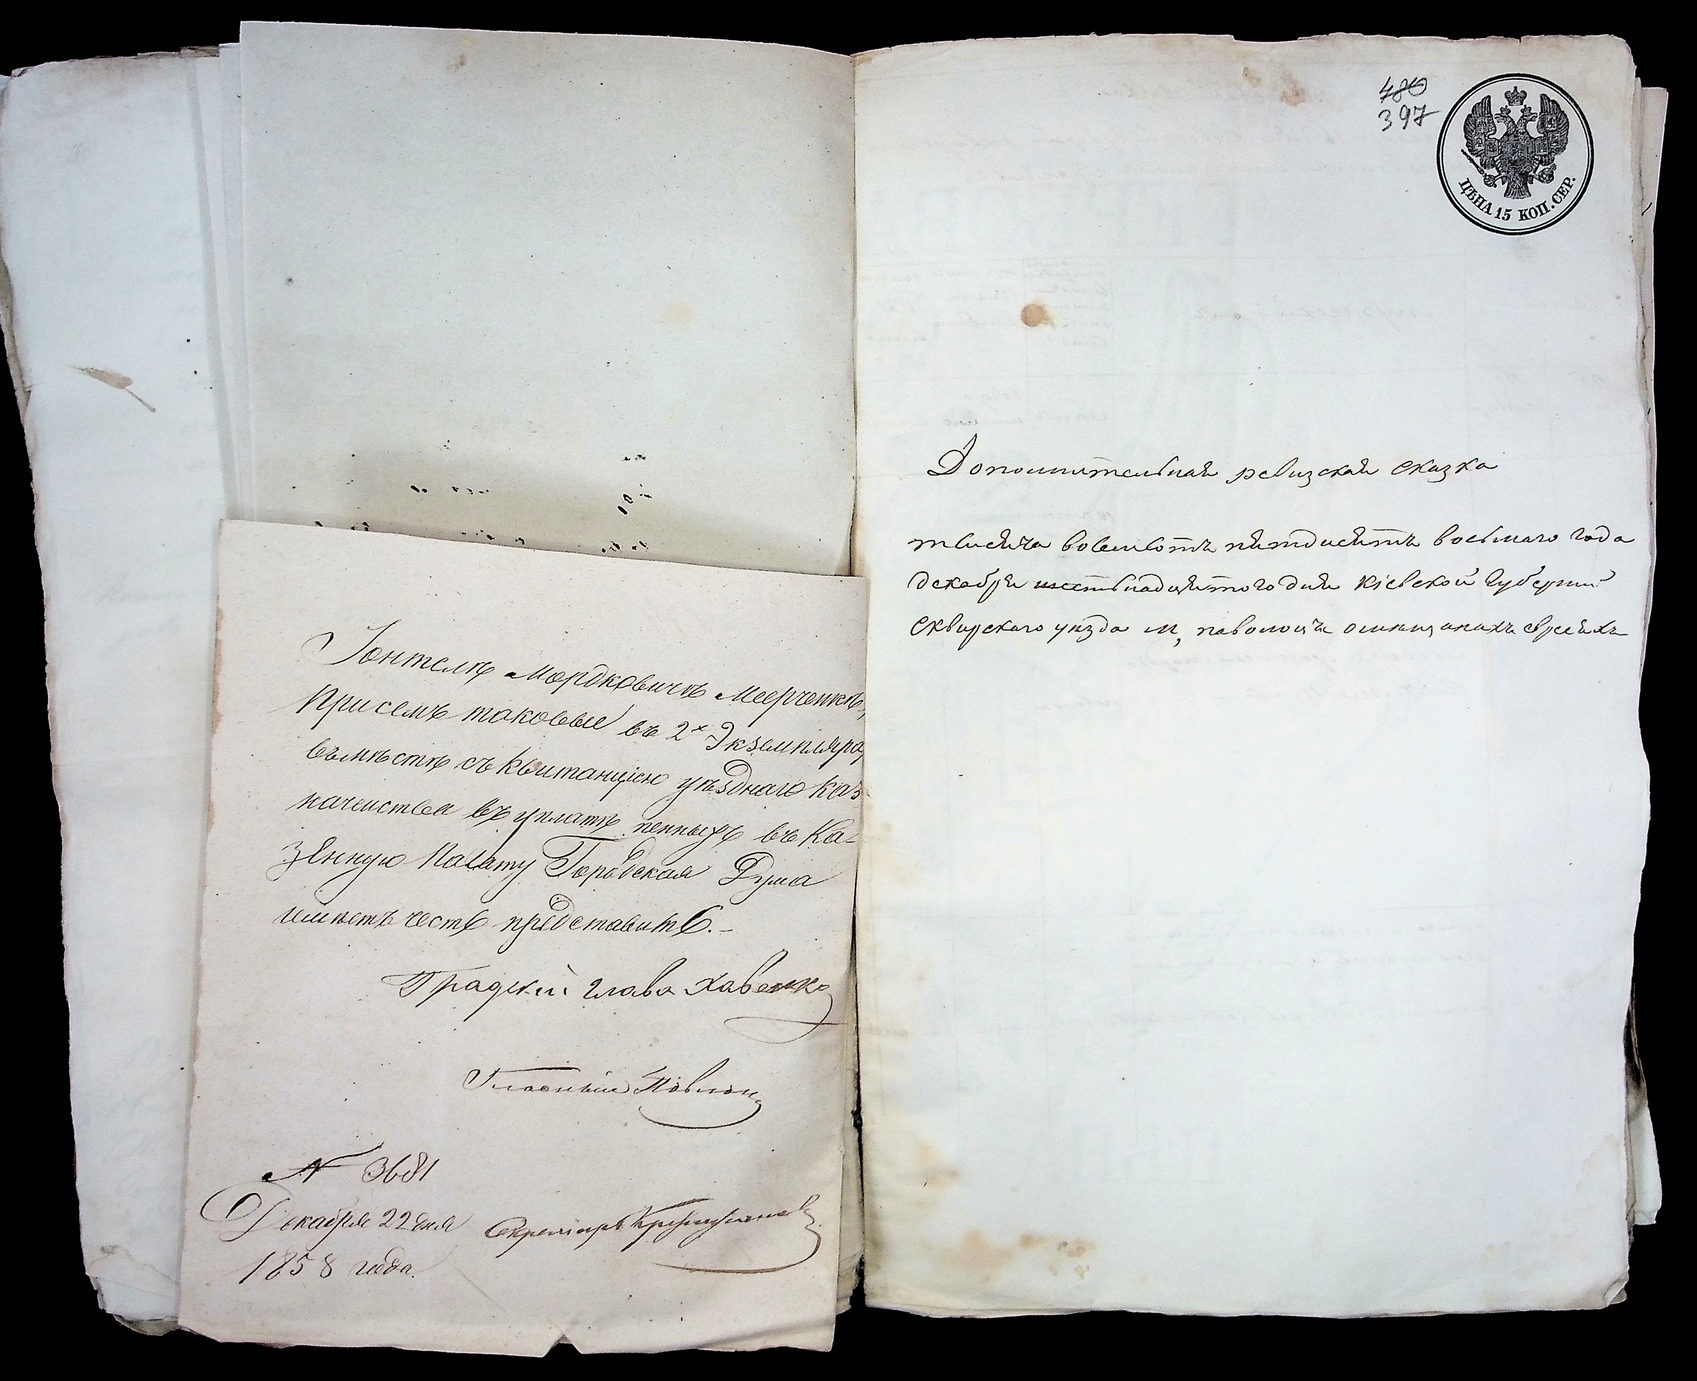 Іонтель Мордковичъ Меерченкъ,
При семъ таковые въ 2х Экземпляра
въмѣстѣ съ квитанціею уѣзднаго каз-
начейства въ уплатѣ пенныхъ въ Ка-
зенную Палату Городская Дума
имѣетъ честь представить.-
Градскій глава Хавенко
Гласный Павлон
№ 3681
Декабря 22 дня
Секретарь
1858 года.
480
397
ЦѢНА 15 КОП. СЕР.
Дополнительная ревизская сказка
тысяча восемьсотъ пятдисятъ восьмаго года
декабря шестьнадцятого дня Кіевской Губерніи
Сквирскаго уѣзда м, паволочъ омѣщанахъ евреяхъ